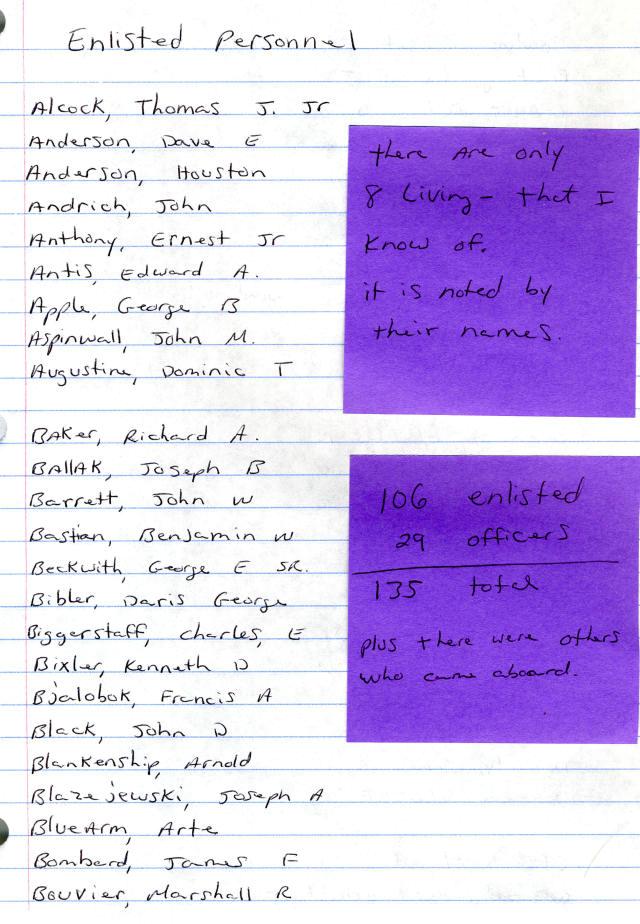 Enlisted Personnel
Alcock, Thomas J. Jr
Anderson, Dave E
Anderson, Houston
Andrich, John
Anthony, Ernest Jr
Antis, Edward A.
Apple, George B
Aspinwall, John M.
Augustine, Dominic T
there are only
8 living - that I
know of.
it is noted by
their names.
BAKer, Richard A.
BAllAK, Joseph B
Barrett, John W
Bastian, Benjamin W
Beckwith, George E SR.
Bibler, Daris George
Biggerstaff, Charles, E
Bixler, Kenneth D
Bjalobok, Francis A
Black, John D
Blankenship, Arnold
Blazejewski, Joseph A
BlueArm, Arte
Bombard, James F
Bouvier, Marshall R
106 enlisted
29 officers
135 total
plus there were others
who came aboard.